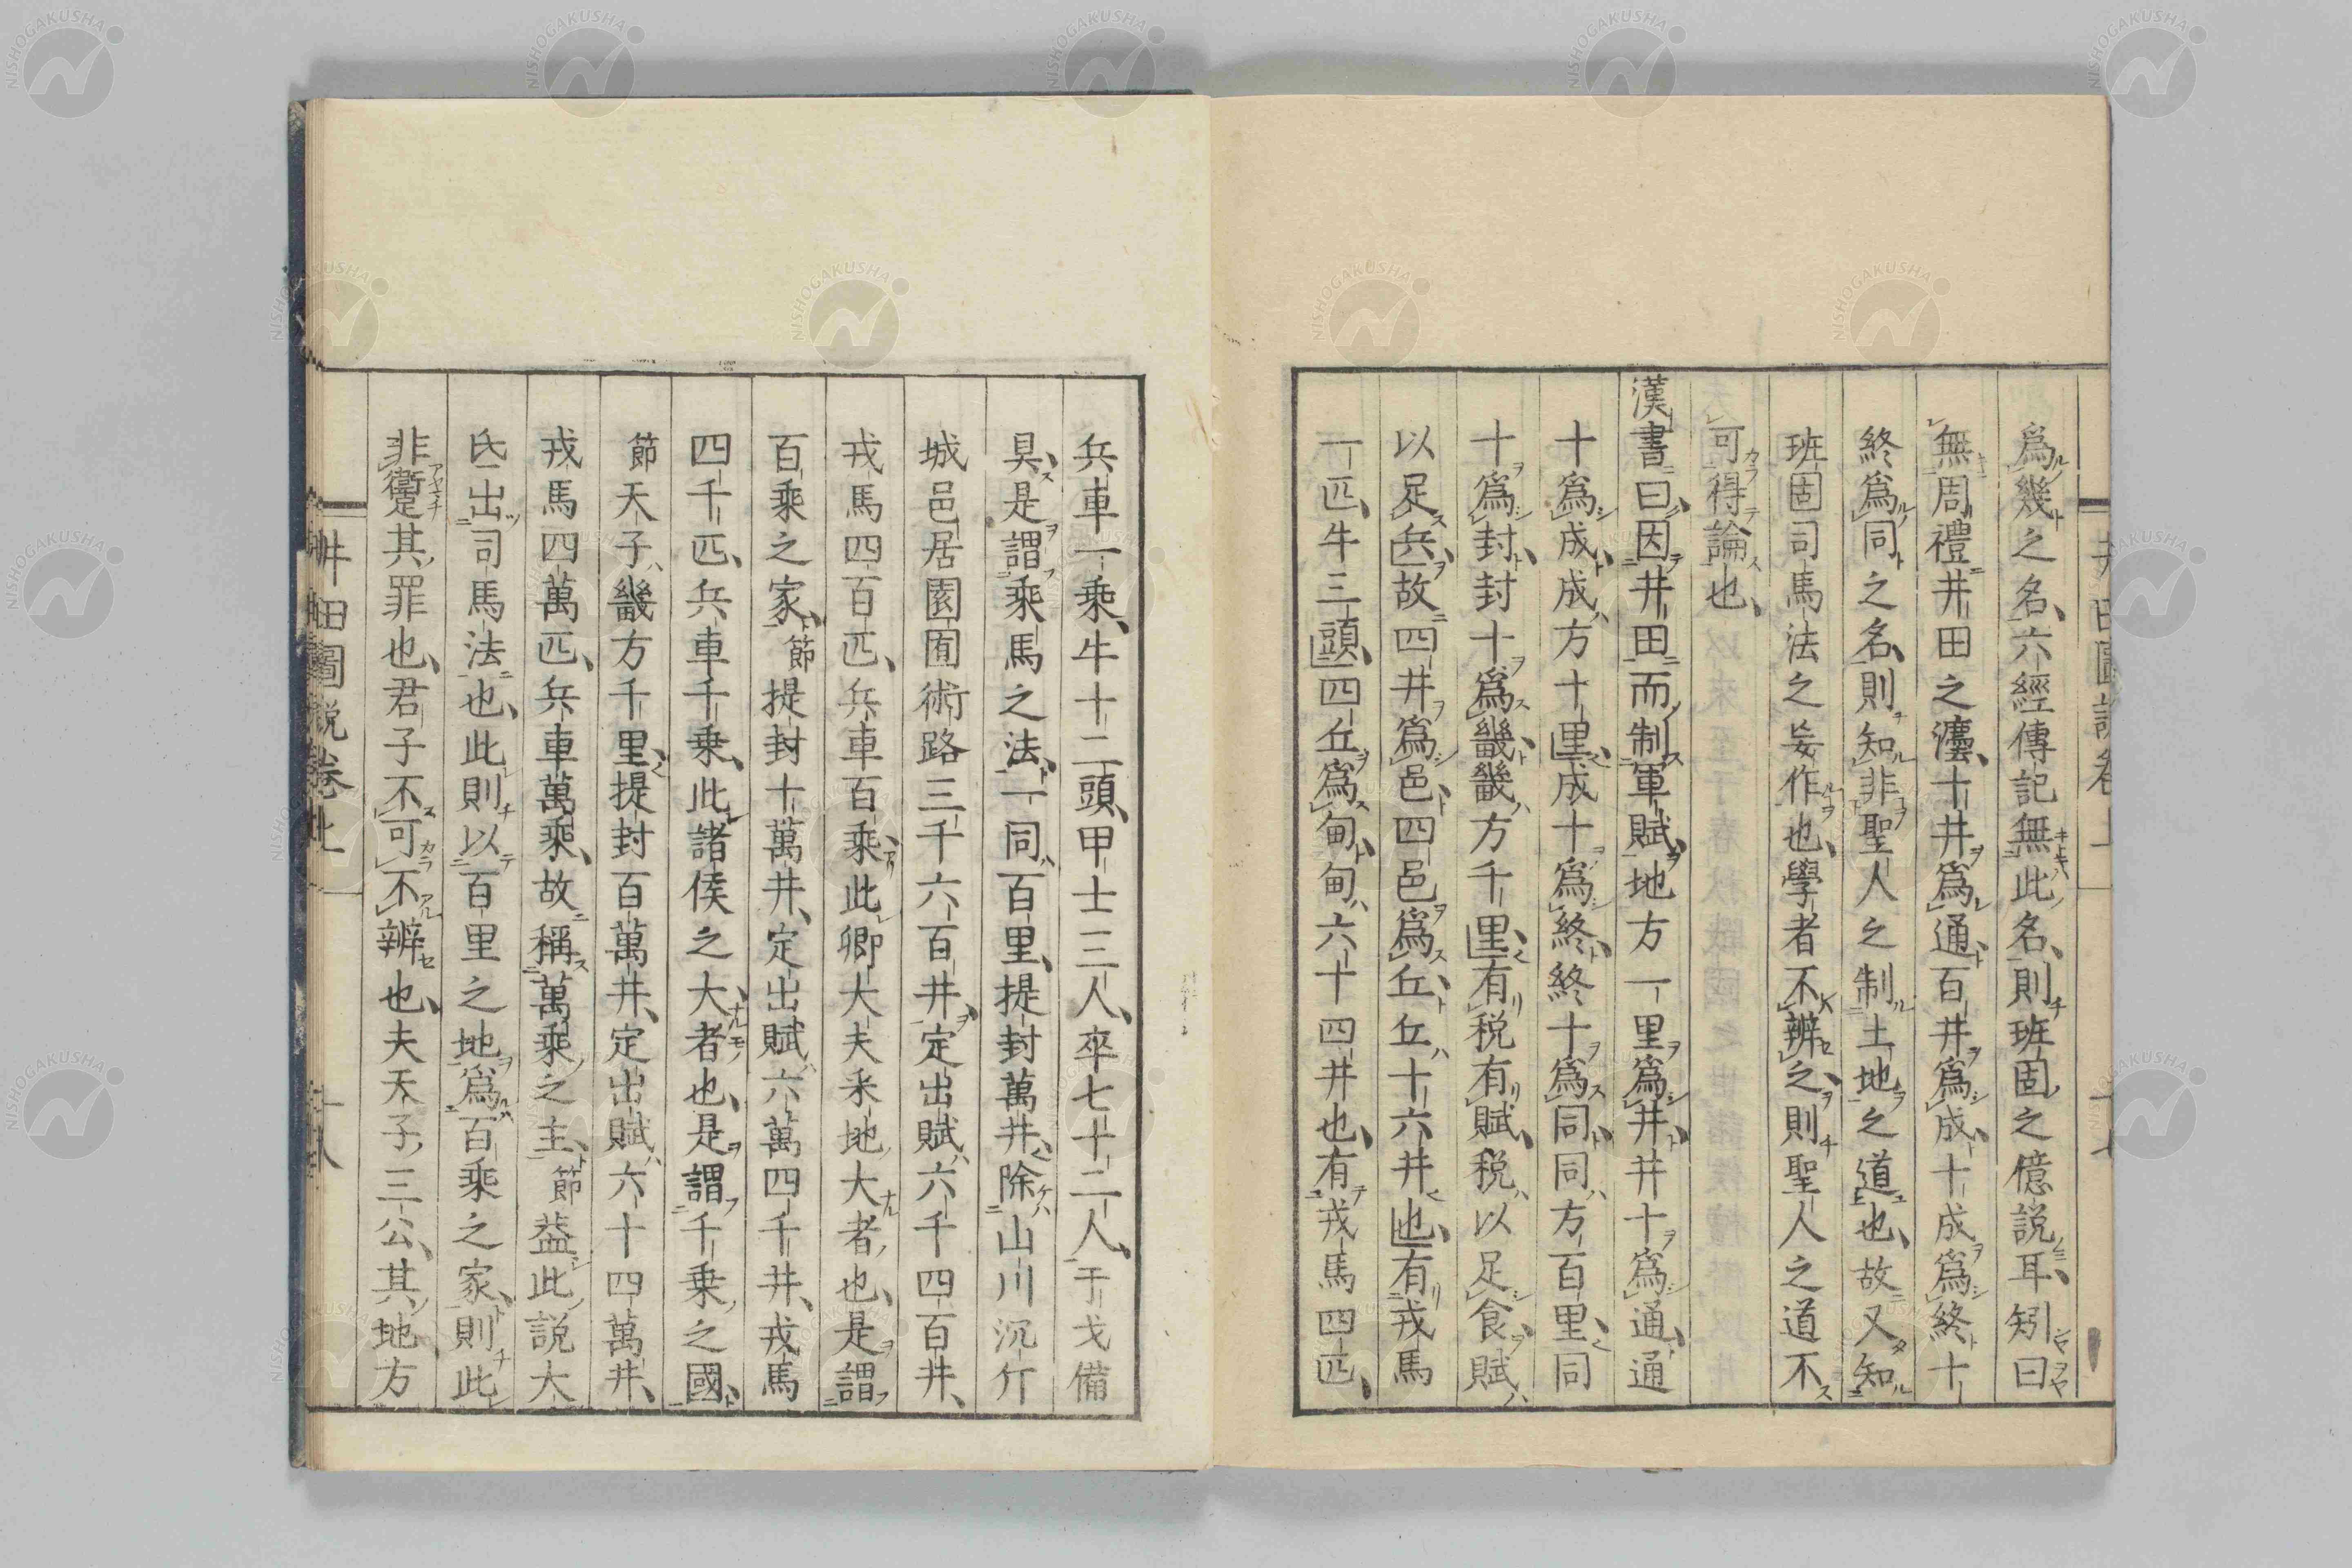 爲幾之名、六經傳記無此名、則班固之億説耳、矧曰
無周禮井田之灋、十井爲通、百井爲成、十成爲終、十
終爲同之名、則知非聖人之制土地之道也、故又知
班固司馬法之妄作也、學者不辨之、則聖人之道不
可得論也、
漢書曰、因井田而制軍賦、地方一里爲井、井十爲通、通
十爲成、成方十里、成十爲終、終十爲同、同方百里、同
十爲封、封十爲畿、畿方千里、有税有賦、税以足食、賦
以足兵、故四井爲邑、四邑爲丘、丘十六井也、有戎馬
一匹、牛三頭、四丘爲甸、甸六十四井也、有戎馬四匹、
兵車一乗、牛十二頭、甲士三人、卒七十二人、干戈備
具、是謂乘馬之法、一同百里、提封萬井、除山川沉斥
城邑居園囿術路三千六百井、定出賦六千四百井、
戎馬四百匹、兵車百乘、此卿大夫釆地大者也、是謂
百乘之家、節提封十萬井、定出賦六萬四千井、戎馬
四千匹、兵車千乗、此諸侯之大者也、是謂千乗之國、
節天子畿方千里、提封百萬井、定出賦六十四萬井、
戎馬四萬匹、兵車萬乘、故稱萬乘之主、節益此説大
氏出司馬法也、此則以百里之地爲百乘之家、則此
非衞其罪也、君子不可不辨也、夫天子三公、其地方
井田圖説卷
十八
NISHOGAKUSHA